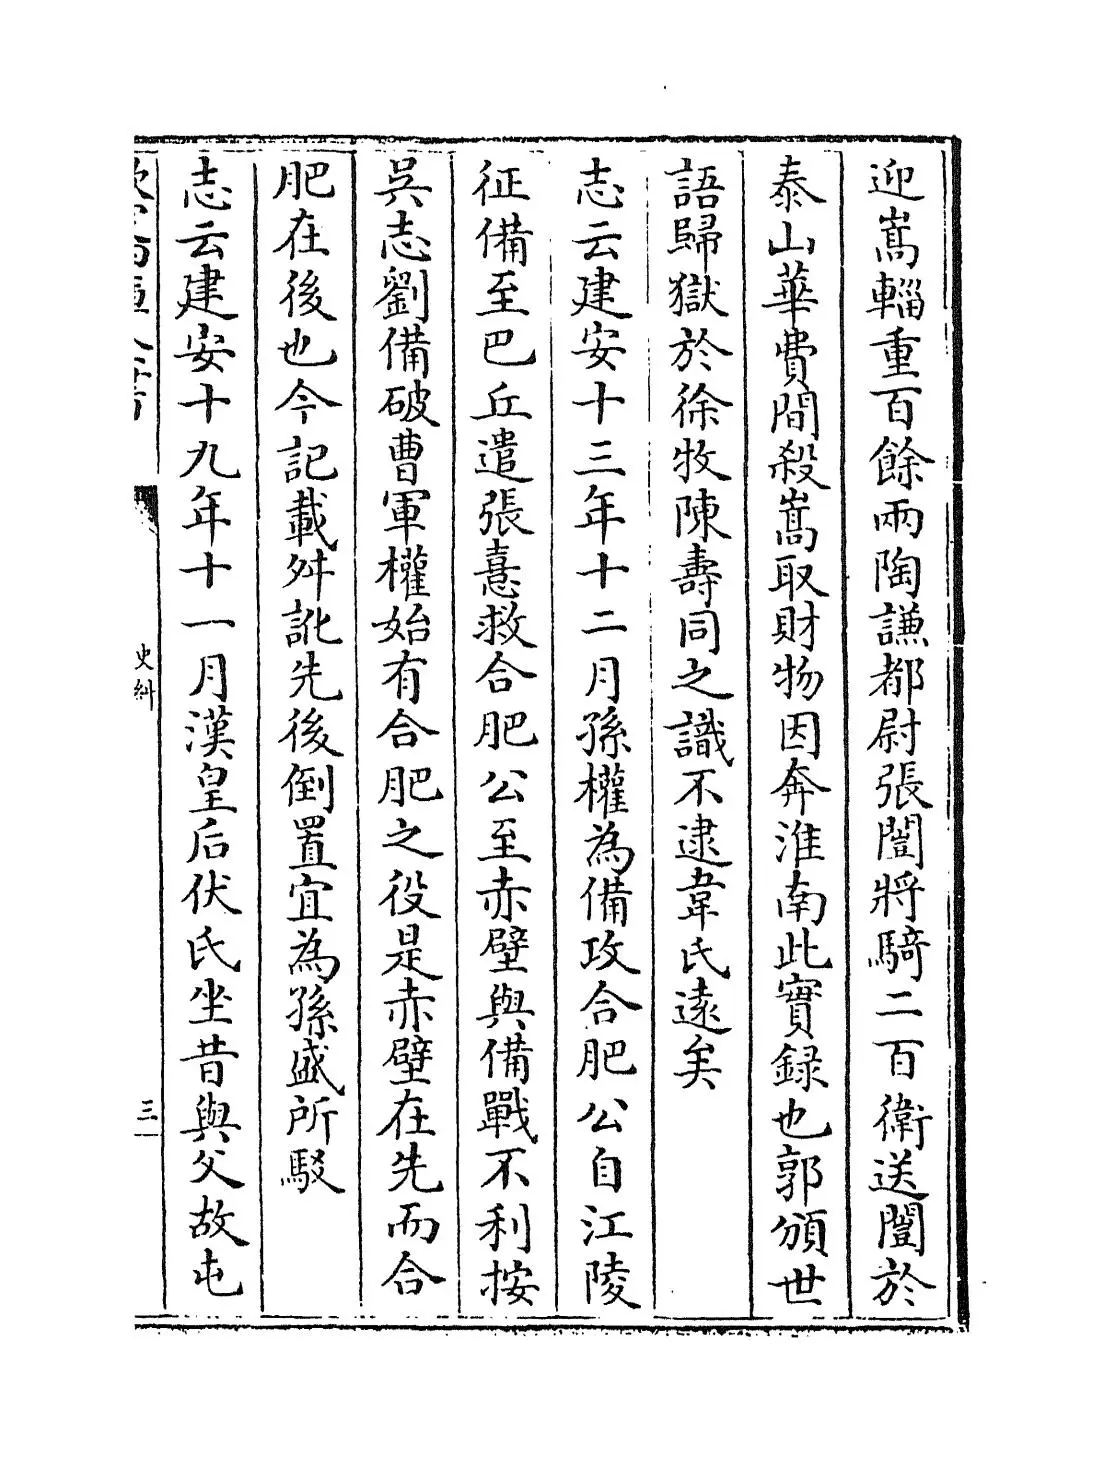 迎嵩輜重百餘兩陶謙都尉張闓將騎二百衛送闓於
泰山華費間殺嵩取財物因奔淮南此實録也郭頒世
語歸獄於徐牧陳壽同之識不逮韋氏遠矣
志云建安十三年十二月孫權為備攻合肥公自江陵
征備至巴丘遣張憙救合肥公至赤壁與備戰不利按
吳志劉備破曹軍權始有合肥之役是赤壁在先而合
肥在後也今記載舛訛先後倒置宜為孫盛所駁
志云建安十九年十一月漢皇后伏氏坐昔與父故屯
史糾
三